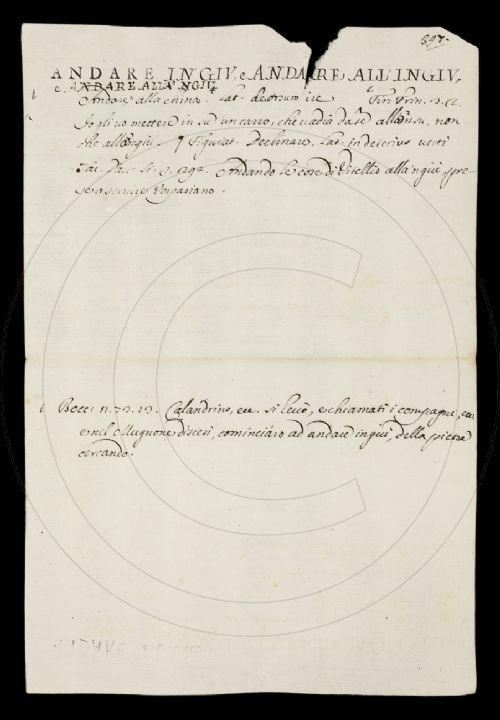 697.
ANDARE INGIV, e ANDARE ALL'INGIV,
e ANDARE ALLA 'NGIV
Andare alla china. Lat. deorsum ire
Io gli vo mettere in su un carro, che vadia da se all'insu, non
che all'ingiu. ¶ Figurat. Declinare. Lat. in deterius verti
Andando le cose di Vitellio alla 'ngiù, pre-
se a servire Vespasiano.
Bocc: n. 73. 13. Calandrino, ec. si levò, e chiamati i compagni, ec.
e nel Mugnone discesi, cominciaro ad andare in giù, della pietra
cercando.